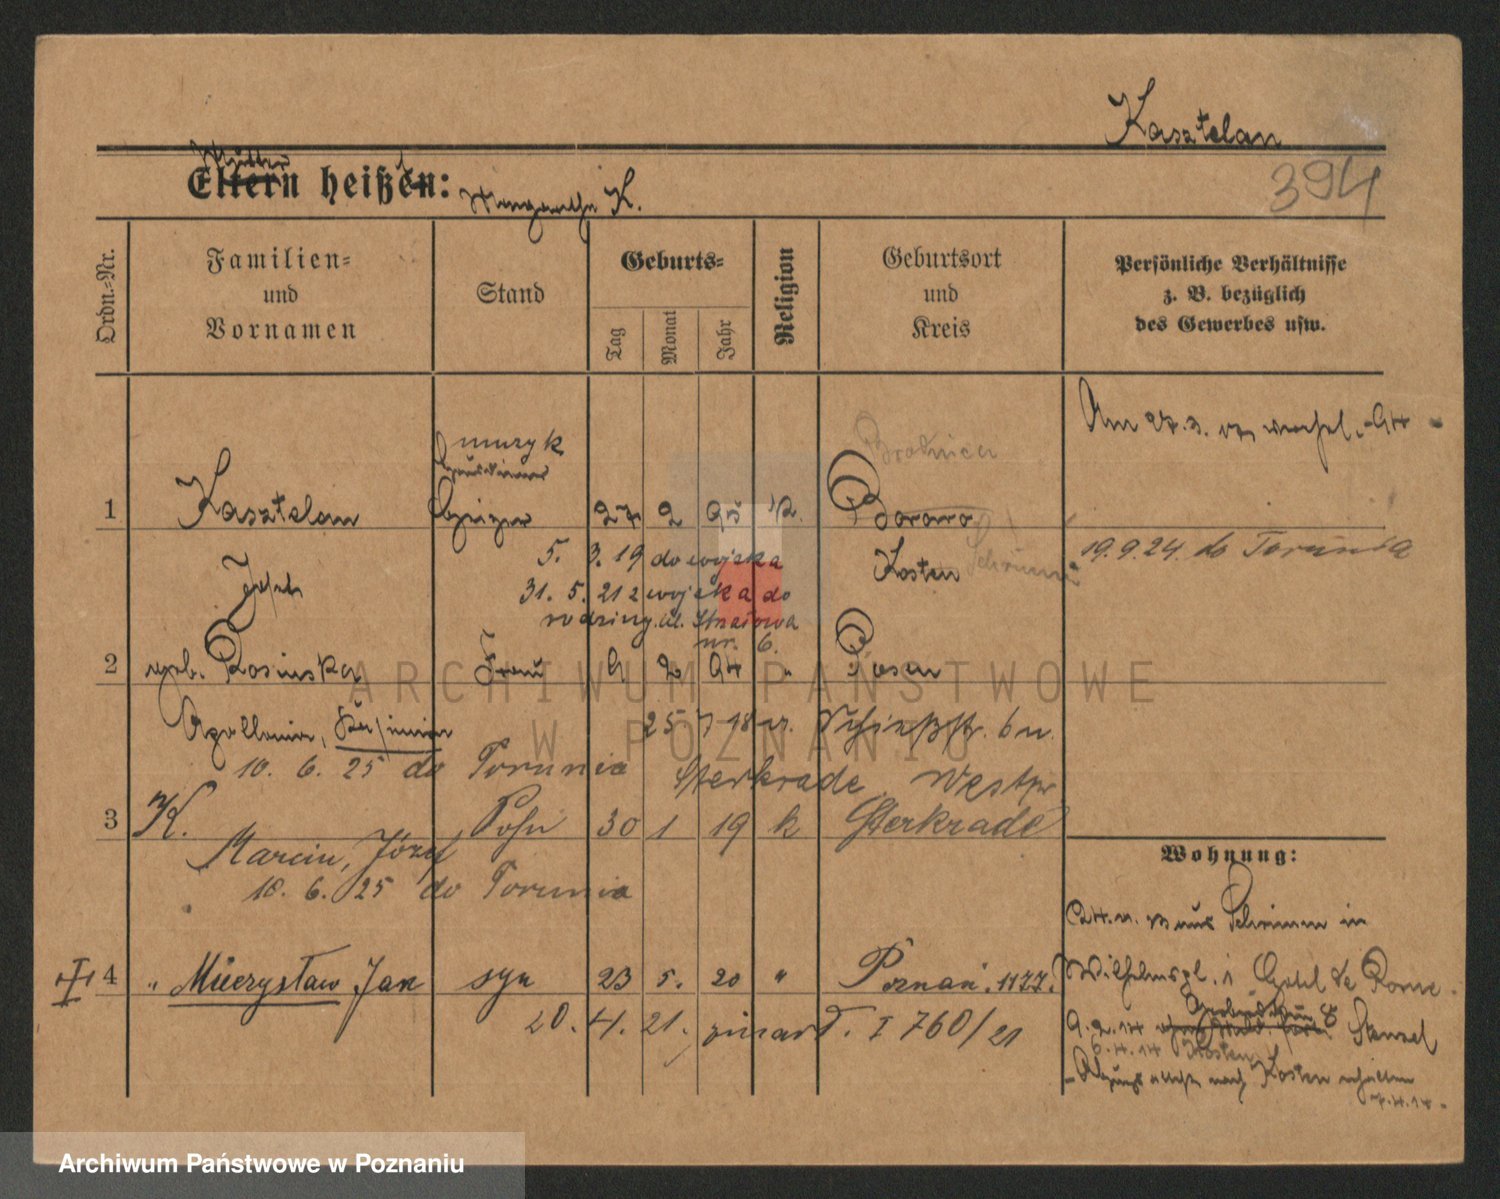 Kasztelan
394
Mutter
Eltern heißen:
Margarethe K.
Ordn.-Nr.
Familien-
und
Vornamen
Stand
Geburts-
Tag
Monat
Jahr
Religion
Geburtsort
und
Kreis
Persönliche Verhältnisse
z. B. bezüglich
des Gewerbes usw.
muzyk
Brodnica
1
Kasztelan
27
2
k.
Borowo
Josef
5. 3. 19 do wojska
Kosten
Schrimm
19. 9. 24. do Torunia
31. 5. 21 z wojska do
rodziny. ul. Strzałowa
nr. 6.
2
geb. Rosinska
Frau
9
2
94
"
Posen
Apollonia,
25 7 18
Schießstr. 6
10. 6. 25 do Torunia
Sterkrade Westpr
3
K.
Sohn
30
1
19
k
Sterkrade
Marcin, Józef
10. 6. 25 do Torunia
Wohnung:
aus Schrimm in
4
" Mieczysław Jan
syn
23
5.
20
"
Poznań. 1177.
Wilhelmspl. 1 Hotel de Rome.
20. 4. 21. zmarł. I 760/21
9. 2. 14
Stenzel
6. 4. 14 Kosten
nach Kosten erhalten
7. 4. 14.
ARCHIWUM PAŃSTWOWE
W POZNANIU
Archiwum Państwowe w Poznaniu